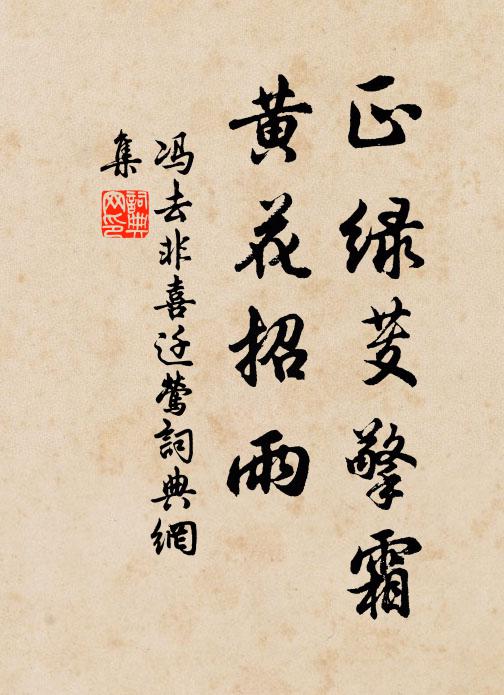 正绿芰擎霜
黄花招雨
冯去非喜迁莺詞典網
集
詞典
网印